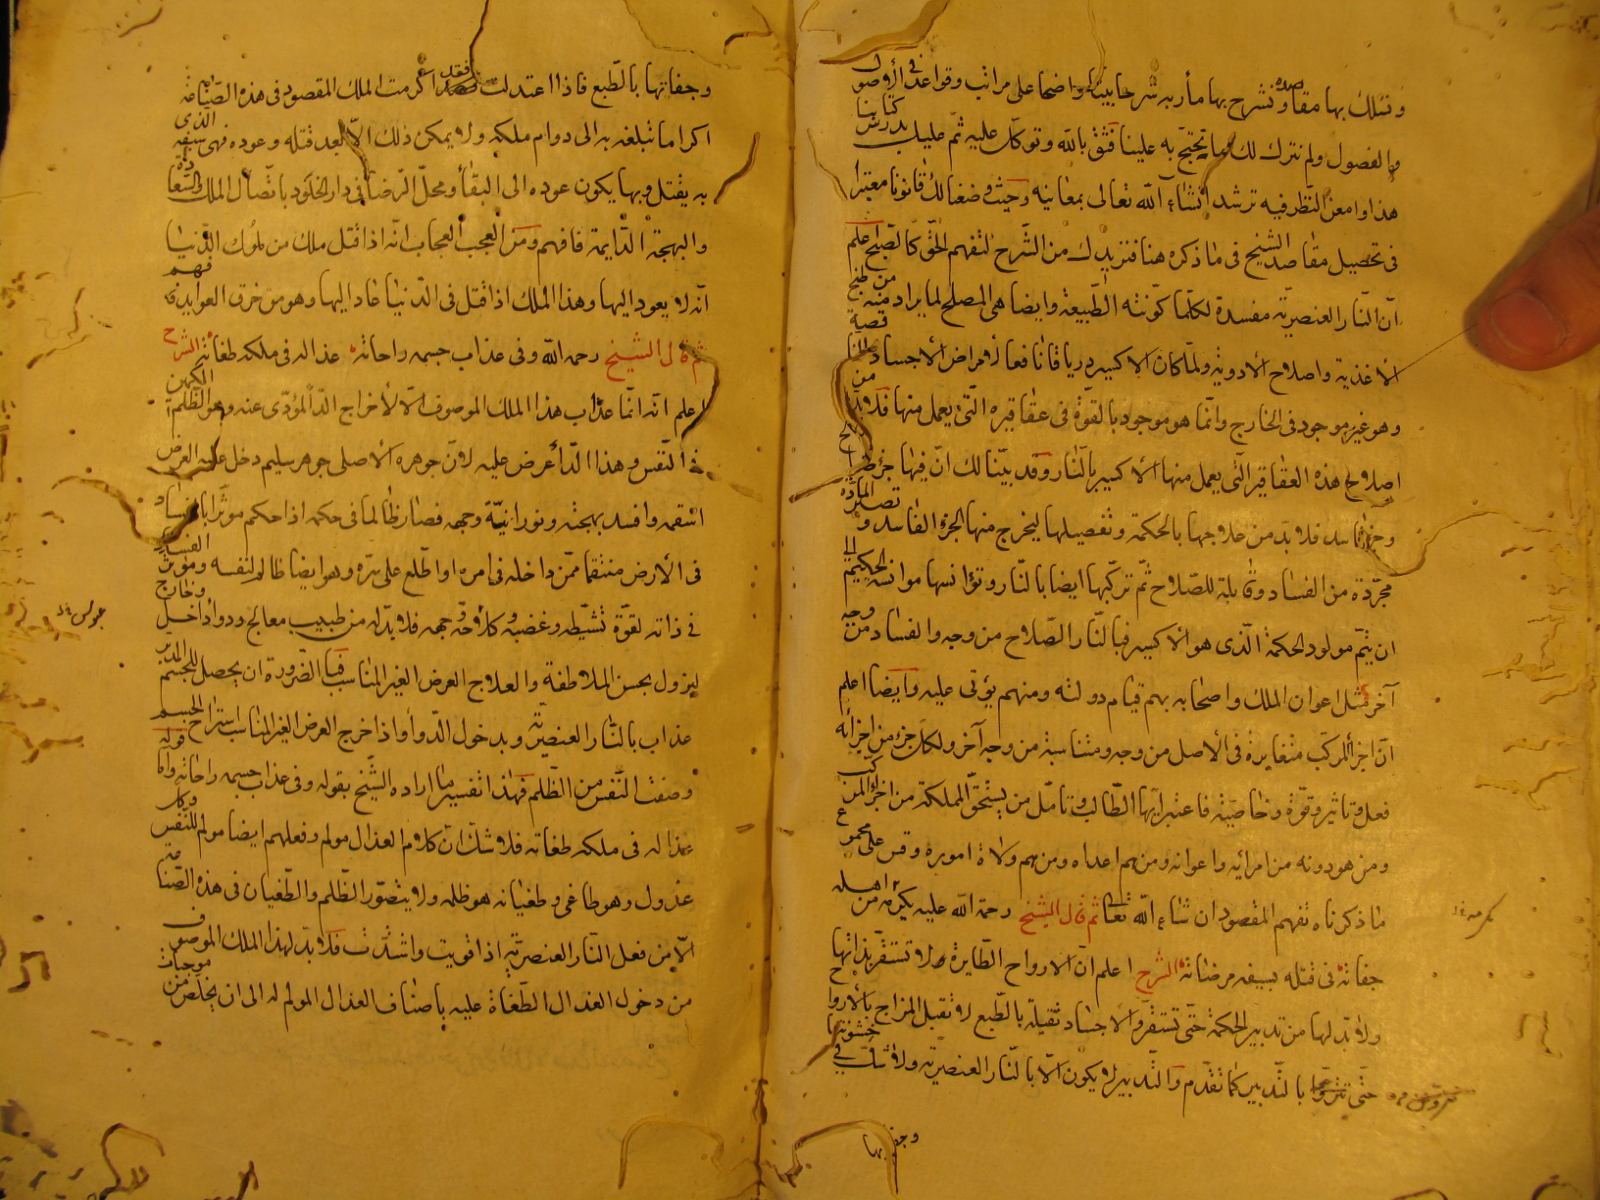 ونسلك بها مقاصده ونشرح بها مأربه شرحا بيننا واضحا على مراتب وقواعد في الأصول
والفصول ولم نترك لك مما يحتج به علينا فثق بالله وتوكل عليه ثم عليك بدرس كتابنا
هذا وامعن النظر فيه ترشد انشاء الله تعالى بمعانيه وحيث وضعنا لك قانونا معتبرا
فى تحصيل مقاصد الشيخ فى ما ذكره هنا فنزيدك من الشرح لتفهم الحق كالصبح اعلم
ان النار العنصرية مفسدة لكلما كونته الطبيعة وايضا هى المصلح لما يراد منه من طبخ
الاغذية واصلاح الأدوية ولما كان الاكسير درياقا نافعا لامراض الأجساد
وهو غير موجود فى الخارج وانما هو موجود بالقوة فى عقاقيره التى يعمل منها فلابد من
اصلاح هذه العقاقير التى يعمل منها الأكسير بالنار وقد بيننا لك ان فيها جزء
وجزء فاسد فلابد من علاجها بالحكمة وتفصيلها ليخرج منها الجزء الفاسد و تصير المادة
مجردة من الفساد وقابلة للصلاح ثم تركيبها ايضا بالنار وتؤانسها موانسة الحكيم الى
ان يتم مولود الحكمة الذى هو الأكسير فبالنار الصلاح من وجه والفساد من وجه
آخر مثل اعوان الملك واصحابه بهم قيام دولته ومنهم يؤتى عليه وايضا اعلم
ان اجزأ المركب متغايرة فى الأصل من وجه ومتناسبة من وجه آخر ولكل جزء من اجزائه
فعل وتاثير وقوة وخاصية فاعتبر ايها الطالب وتامل من يستحق المملكة من اجزاء المركب
ومن هو دونه من امرائه واعوانه ومن هم اعداه ومن هم ولاة اموره وقس على مجموع
ما ذكرناه تفهم المقصود ان شاء الله تعالى ثم قال الشيخ رحمة الله عليه يكرمه من اهله
جفاته فى قتله بسيفه مرضاته الشرح اعلم ان الارواح الطايرة لا تستقر بذاتها
ولا بد لها من تدبير الحكمة حتى تستقر والاجساد ثقيلة بالطبع لا تقبل المزاج بالأرواح
حتى بالتدبير كما تقدم والتدبير لا يكون الا بالنار العنصرية ولا شك فى خشونتها
وجفاتها
وجفاتها بالطبع فاذا اعتدلت فقد اكرمت الملك المقصود فى هذه الصناعة
اكراما تبلغه به الى دوام ملكه ولا يمكن ذلك الا بعد قتله وعوده فهى سيفه الذى
به يقتل وبها يكون عوده الى البقأ ومحل الرضا فى دار الخلود باتصال الملك السعادة
والبهجة الدايمة فافهم ومن العجب العجاب انه اذا قتل ملك من ملوك الدنيا
انه لا يعود اليها وهذا الملك اذا قتل فى الدنيا عاد اليها وهو من خرق العوايد فافهم
ثم قال الشيخ رحمه الله وفى عذاب جسمه راحاته عذاله فى ملكه طغاته الشرح
اعلم انه انما عذاب هذا الملك الموصوف الا لأخراج الدأ المؤذى عنه وهو الظلم الكمين
فى النفس وهذا الدأ عرض عليه لان جوهره الأصلى جوهر سليم دخل عليه العرض
اسقمه وافسد بهجته ونورانية وجهه فصار ظالما فى حكمه اذا حكم موثرا بالفساد
فى الأرض منتقما ممن داخله فى امره او اطلع على سره وهو ايضا ظالم لنفسه وموثر الفساد
فى ذاته لقوة تشيطه وغضبه فلابد له من طبيب معالج ودوأ داخل وخارج
ليزول بحسن الملاطفة والعلاج العرض الغير المناسب فبالضرورة ان يحصل للجسم المدبر
عذاب بالنار العنصرية وبدخول الدوأ واذا خرج العرض الغير المناسب استراح الجسم
وصفت النفس من الظلم فهذا تفسير ما اراده الشيخ بقوله وفى عذاب جسمه راحاته واما قوله
عذاله فى ملكه طغاته فلا شك ان كلام العذال مولم وفعلهم ايضا مولم للنفس وكل
عذول وهو طاغى وطغيانه هو ظلمه ولا يتصور الظلم والطغيان فى هذه الصناعة
الا من فعل النار العنصرية اذا قويت واشتدت فلا بد لهذا الملك الموصوف
من دخول العذال الطغاة عليه باصناف العذال المولم له الى ان يخلص من موجبات